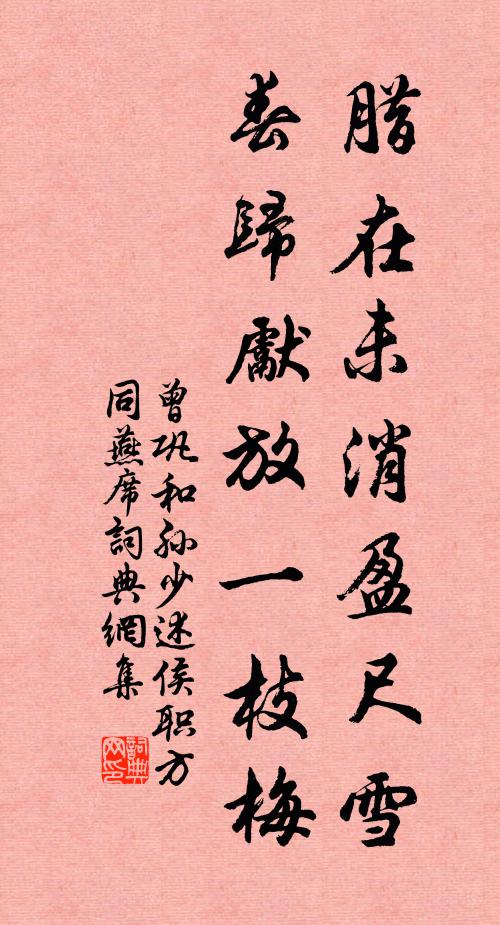 腊在未消盈尺雪
春歸獻放一枝梅
曾巩和孙少述侯职方
同燕席詞典網集
詞典网印